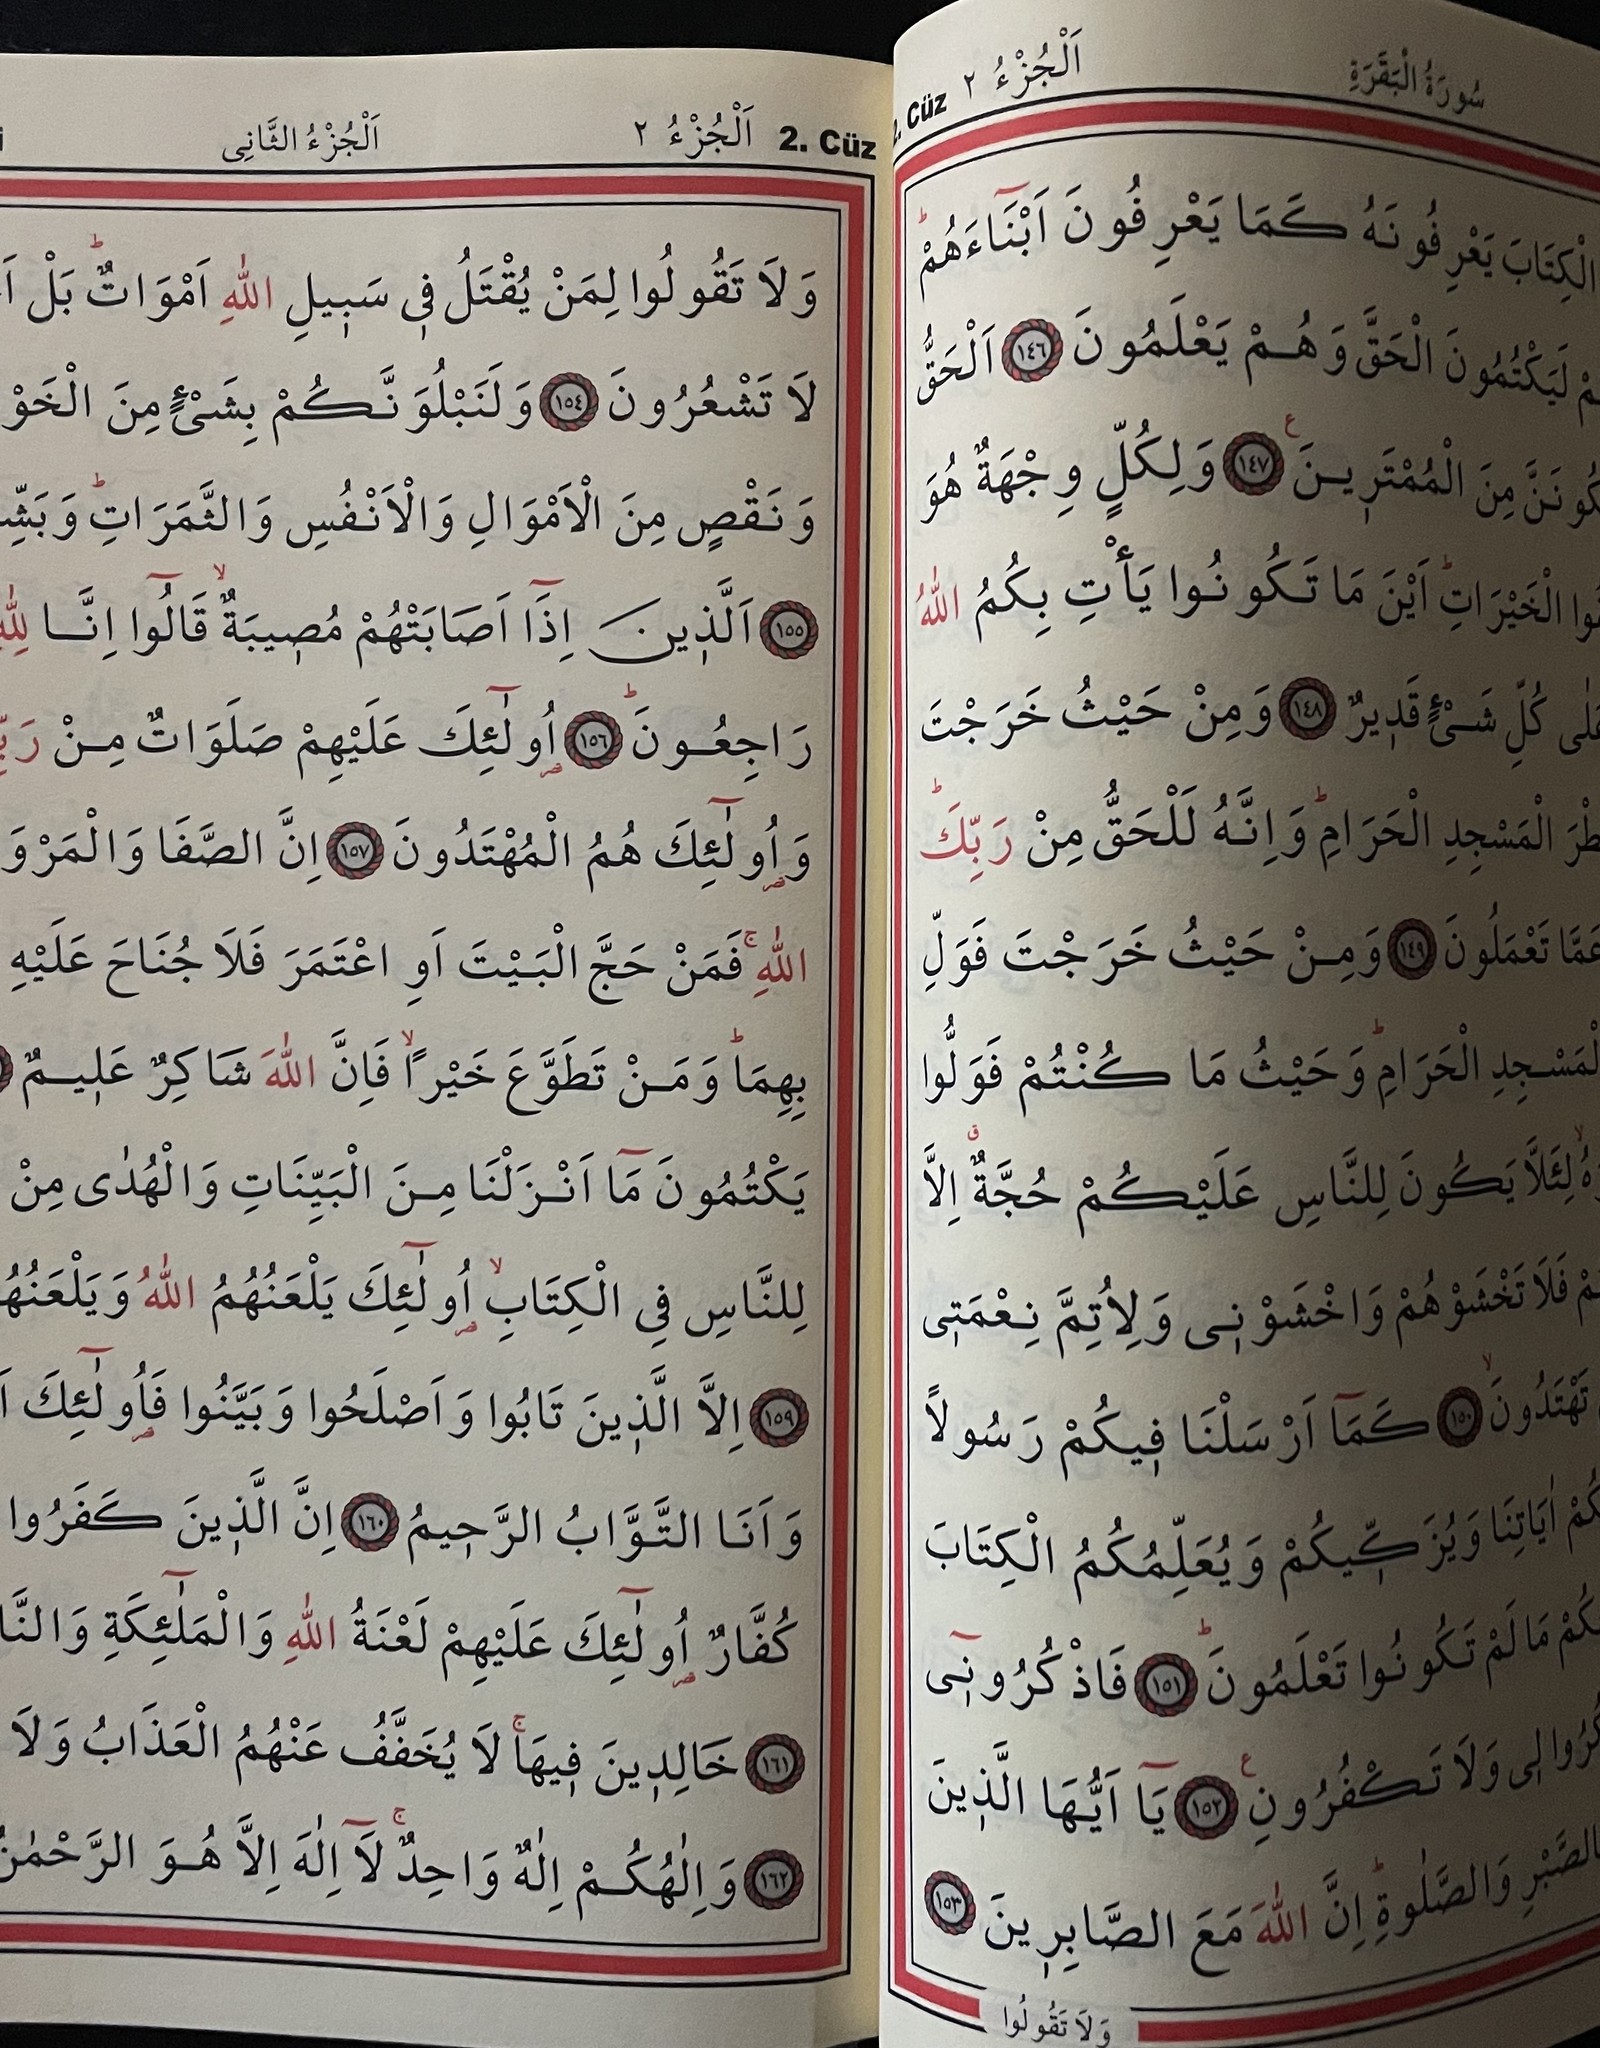 سُورَةُ الْبَقَرَةِ
اَلْجُزْءُ ٢
2. Cüz
الْكِتَابَ يَعْرِفُونَهُ كَمَا يَعْرِفُونَ اَبْنَٓاءَهُمْۜ
لَيَكْتُمُونَ الْحَقَّ وَهُمْ يَعْلَمُونَ ﴿١٤٦﴾ اَلْحَقُّ
مِنَ الْمُمْتَر۪ينَ۟ ﴿١٤٧﴾ وَلِكُلٍّ وِجْهَةٌ هُوَ
الْخَيْرَاتِۜ اَيْنَ مَا تَكُونُوا يَأْتِ بِكُمُ اللّٰهُ
كُلِّ شَيْءٍ قَد۪يرٌ ﴿١٤٨﴾ وَمِنْ حَيْثُ خَرَجْتَ
الْمَسْجِدِ الْحَرَامِۜ وَاِنَّهُ لَلْحَقُّ مِنْ رَبِّكَۜ
عَمَّا تَعْمَلُونَ ﴿١٤٩﴾ وَمِنْ حَيْثُ خَرَجْتَ فَوَلِّ
الْمَسْجِدِ الْحَرَامِۜ وَحَيْثُ مَا كُنْتُمْ فَوَلُّوا
لِئَلَّا يَكُونَ لِلنَّاسِ عَلَيْكُمْ حُجَّةٌۗ اِلَّا
فَلَا تَخْشَوْهُمْ وَاخْشَوْن۪ي وَلِاُتِمَّ نِعْمَت۪ي
تَهْتَدُونَۙ ﴿١٥٠﴾ كَمَٓا اَرْسَلْنَا ف۪يكُمْ رَسُولًا
اٰيَاتِنَا وَيُزَكّ۪يكُمْ وَيُعَلِّمُكُمُ الْكِتَابَ
مَا لَمْ تَكُونُوا تَعْلَمُونَۜ ﴿١٥١﴾ فَاذْكُرُون۪ٓي
ل۪ي وَلَا تَكْفُرُونِ۟ ﴿١٥٢﴾ يَٓا اَيُّهَا الَّذ۪ينَ
بِالصَّبْرِ وَالصَّلٰوةِۜ اِنَّ اللّٰهَ مَعَ الصَّابِر۪ينَ ﴿١٥٣﴾
وَلَا تَقُولُوا
2. Cüz
اَلْجُزْءُ ٢
اَلْجُزْءُ الثَّانِى
وَلَا تَقُولُوا لِمَنْ يُقْتَلُ ف۪ي سَب۪يلِ اللّٰهِ اَمْوَاتٌۜ بَلْ
لَا تَشْعُرُونَ ﴿١٥٤﴾ وَلَنَبْلُوَنَّكُمْ بِشَيْءٍ مِنَ
وَنَقْصٍ مِنَ الْاَمْوَالِ وَالْاَنْفُسِ وَالثَّمَرَاتِۜ
﴿١٥٥﴾ اَلَّذ۪ينَ اِذَٓا اَصَابَتْهُمْ مُص۪يبَةٌۙ قَالُٓوا اِنَّا لِلّٰهِ
رَاجِعُونَۜ ﴿١٥٦﴾ اُو۬لٰٓئِكَ عَلَيْهِمْ صَلَوَاتٌ مِنْ
وَاُو۬لٰٓئِكَ هُمُ الْمُهْتَدُونَ ﴿١٥٧﴾ اِنَّ الصَّفَا
اللّٰهِۚ فَمَنْ حَجَّ الْبَيْتَ اَوِ اعْتَمَرَ فَلَا جُنَاحَ عَلَيْهِ
بِهِمَاۜ وَمَنْ تَطَوَّعَ خَيْرًاۙ فَاِنَّ اللّٰهَ شَاكِرٌ عَل۪يمٌ
يَكْتُمُونَ مَٓا اَنْزَلْنَا مِنَ الْبَيِّنَاتِ وَالْهُدٰى مِنْ
لِلنَّاسِ فِي الْكِتَابِۙ اُو۬لٰٓئِكَ يَلْعَنُهُمُ اللّٰهُ
﴿١٥٩﴾ اِلَّا الَّذ۪ينَ تَابُوا وَاَصْلَحُوا وَبَيَّنُوا فَاُو۬لٰٓئِكَ
وَاَنَا التَّوَّابُ الرَّح۪يمُ ﴿١٦٠﴾ اِنَّ الَّذ۪ينَ كَفَرُوا
كُفَّارٌ اُو۬لٰٓئِكَ عَلَيْهِمْ لَعْنَةُ اللّٰهِ وَالْمَلٰٓئِكَةِ
﴿١٦١﴾ خَالِد۪ينَ ف۪يهَاۚ لَا يُخَفَّفُ عَنْهُمُ الْعَذَابُ وَلَا
﴿١٦٢﴾ وَاِلٰهُكُمْ اِلٰهٌ وَاحِدٌۚ لَٓا اِلٰهَ اِلَّا هُوَ الرَّحْمٰنُ